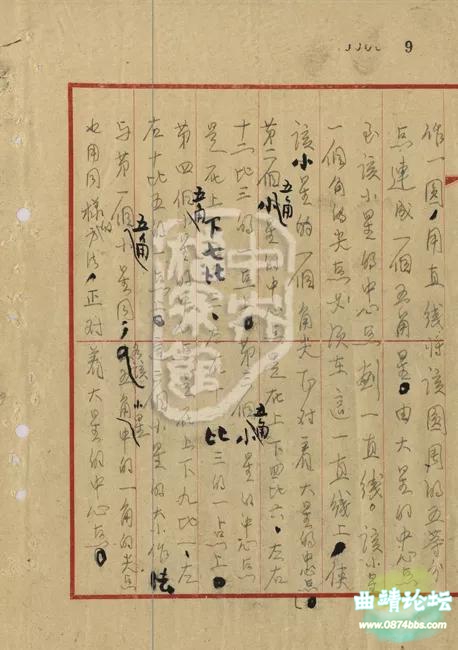 9
作一圆,用直线将该圆周的五等分
点连成一个五角星。由大星的中心点
至该小星的中心点划一直线。该小星
一个角的尖点必须在这一直线上,使
该小星的一个角尖正对着大星的中心点。
第二个小五角星的中心点是在上下四比六、左右
十二比三的一点上。第三个小五角星的中心点
是在上下七比 左 十 比三的一点上。
第四个小五角星的 是在上下九比一、左
右十比五的一点 。 三个小星的大小作法
与第一个小五角星同;各该小星五角中的一角的尖点
也用同样的方法,正对着大星的中心点。
中央档案馆
曲靖论坛
www.0874bbs.com